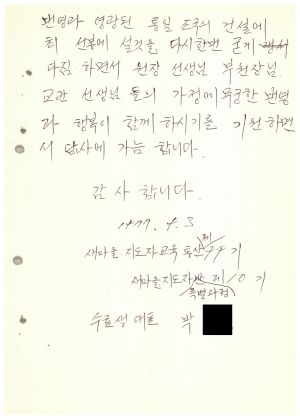 번영과 영광된 통일 조국의 건설에
최 선봉에 설것을 다시한번 굳게
다짐 하면서 원장 선생님 부원장님.
교관 선생님 들의 가정에 무궁한 번영
과 행복이 함께 하시기를 기원 하면
서 답사에 가늠 합니다.
감 사 합니다.
1977. 9. 3
새마을 지도자교육 통산 제 기
새마을지도자반 제 10 기
특별과정
수료생 대표 박